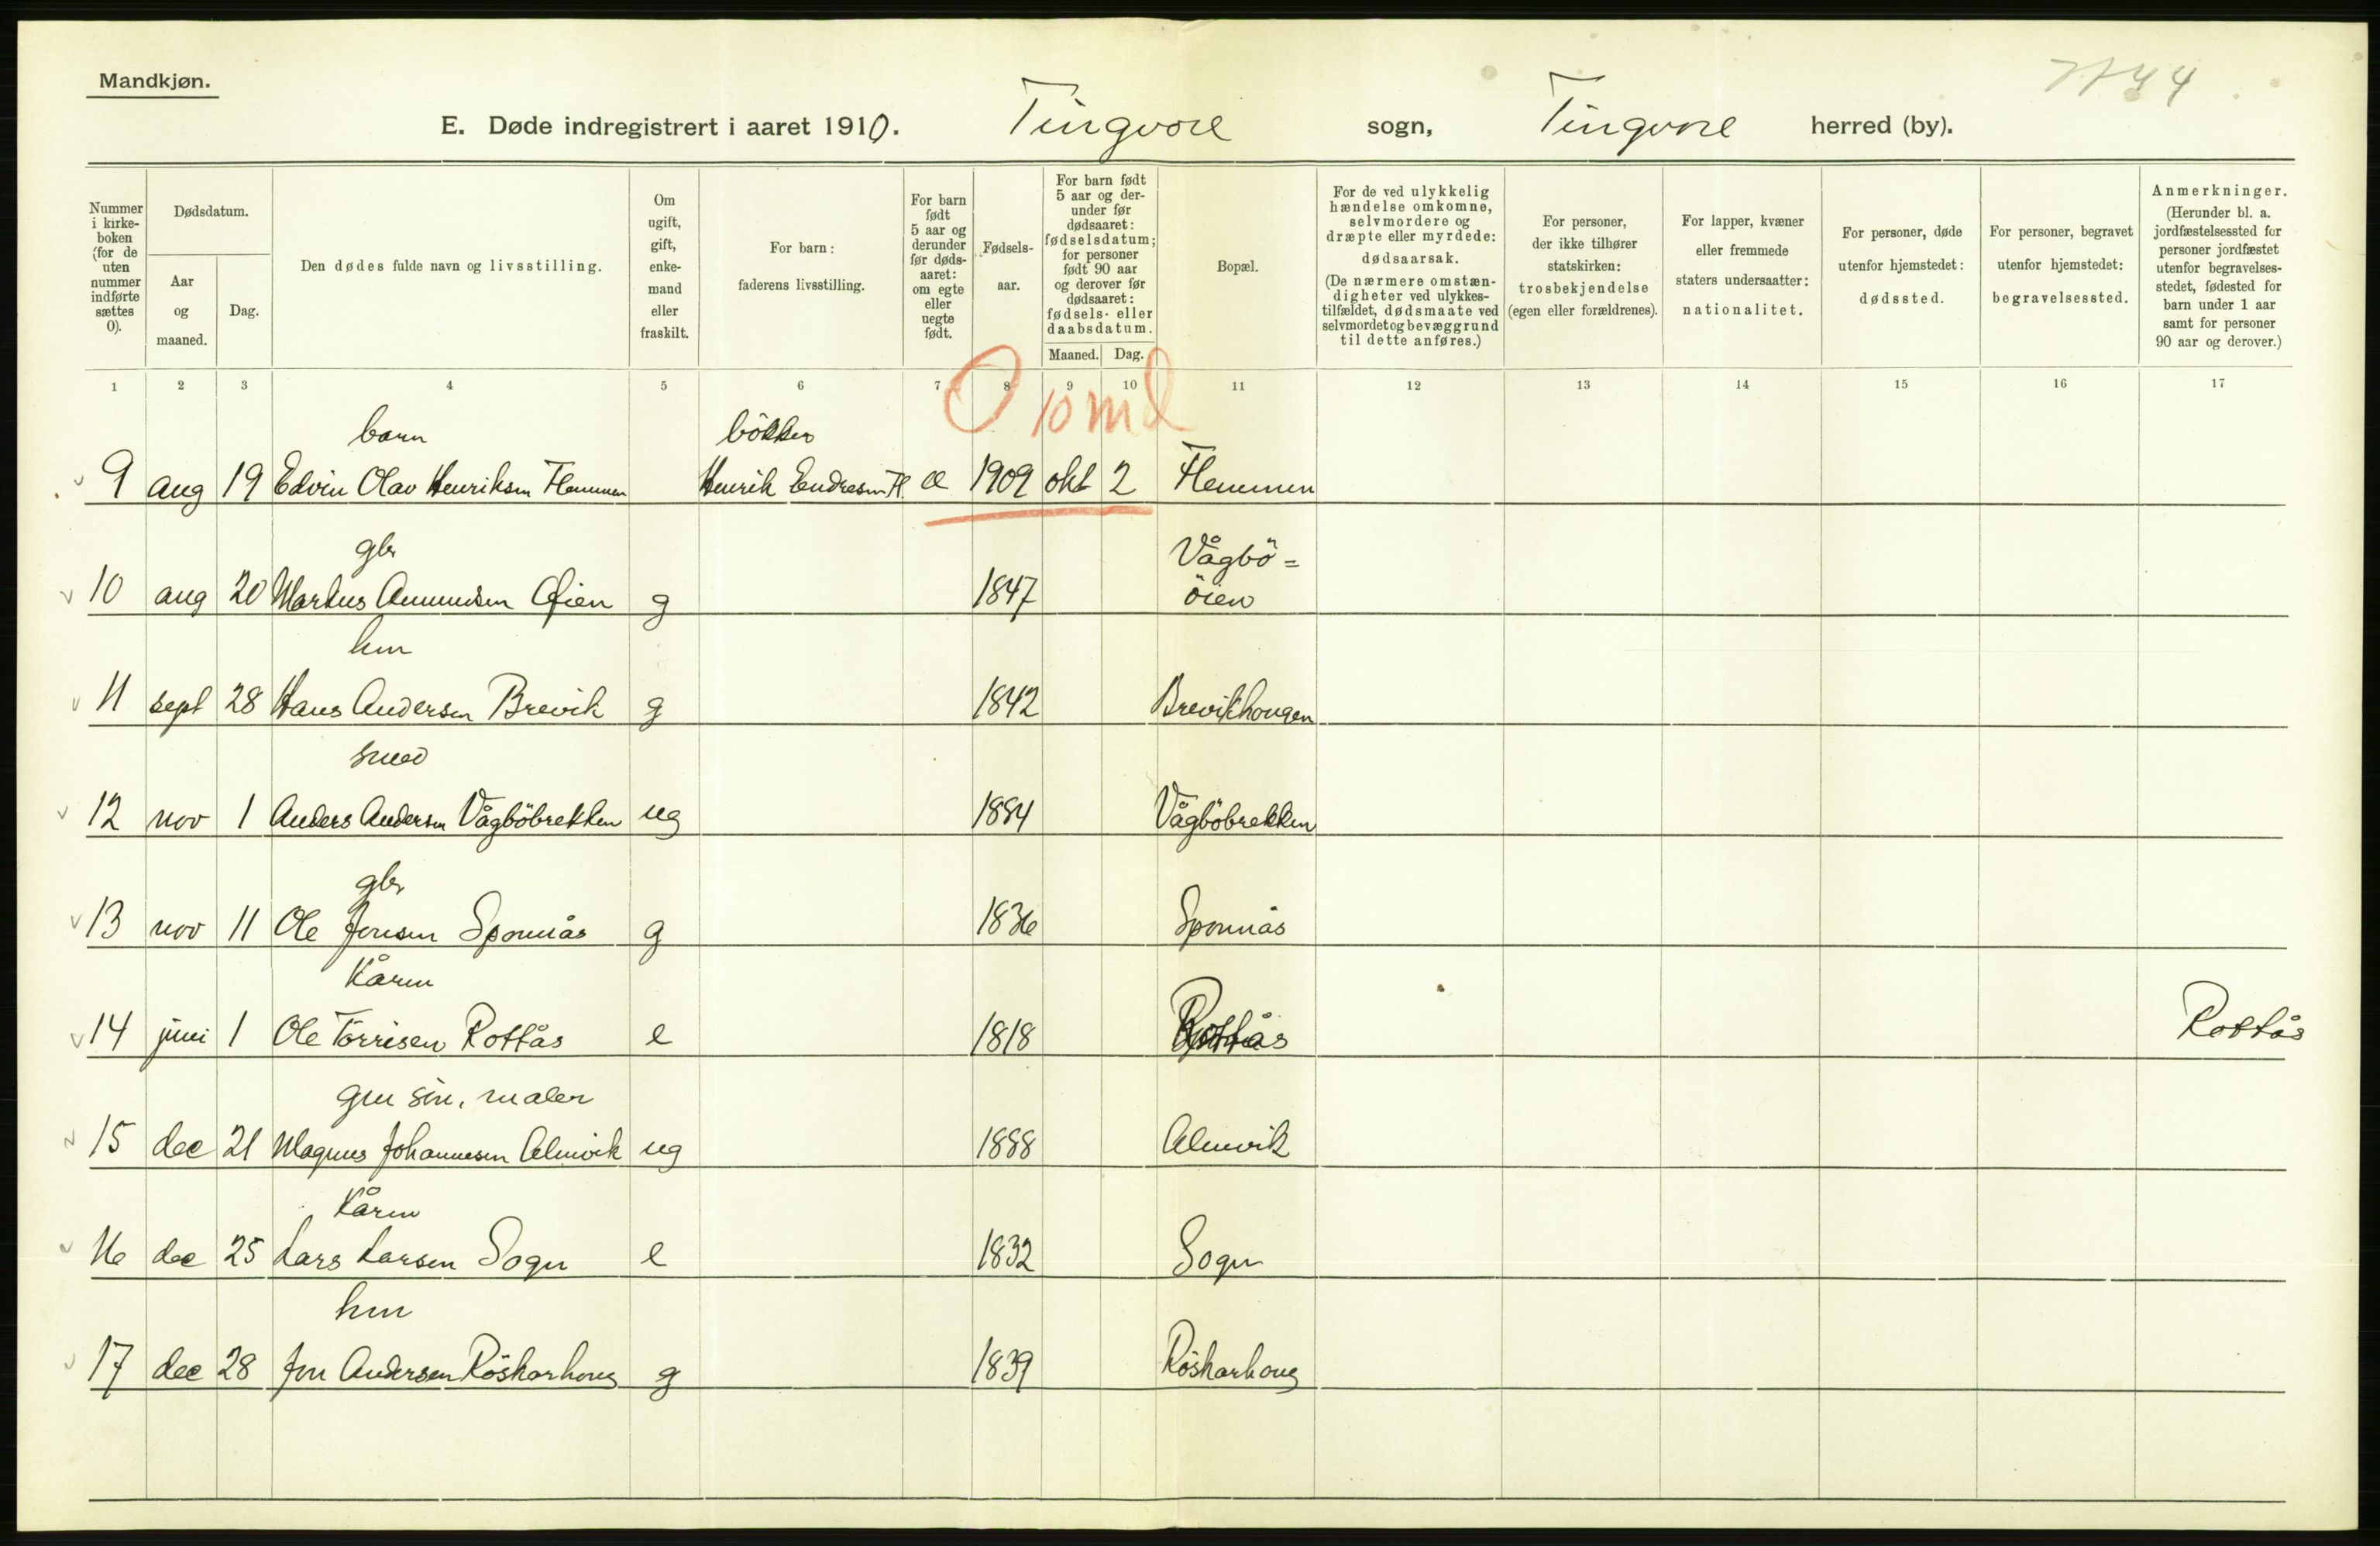 Mandkjøn.
E. Døde indregistrert i aaret 1910. Tingvoll sogn, Tingvoll herred (by).
Nummer i kirke-boken (for de uten nummer indførte sættes 0).
Dødsdatum.
Aar og maaned.
Dag.
Den dødes fulde navn og livsstilling.
Om ugift, gift, enke-mand eller fraskilt.
For barn: faderens livsstilling.
For barn født 5 aar og derunder før døds-aaret: om egte eller uegte født.
Fødsels-aar.
For barn født 5 aar og der-under før dødsaaret: fødselsdatum; for personer født 90 aar og derover før dødsaaret: fødsels- eller daabsdatum.
Maaned. Dag.
Bopæl.
For de ved ulykkelig hændelse omkomne, selvmordere og dræpte eller myrdede: dødsaarsak. (De nærmere omstæn-digheter ved ulykkes-tilfældet, dødsmaate ved selvmordet og bevæggrund til dette anføres.)
For personer, der ikke tilhører statskirken: trosbekjendelse (egen eller forældrenes).
For lapper, kvæner eller fremmede staters undersaatter: nationalitet.
For personer, døde utenfor hjemstedet: dødssted.
For personer, begravet utenfor hjemstedet: begravelsessted.
Anmerkninger. (Herunder bl. a. jordfæstelsessted for personer jordfæstet utenfor begravelses-stedet, fødested for barn under 1 aar samt for personer 90 aar og derover.)
1 2 3 4 5 6 7 8 9 10 11 12 13 14 15 16 17
0 10 md
barn bökker
9 aug 19 Edvin Olav Henriksen Flemmen Henrik Endresen Fl. e 1909 okt 2 Flemmen
gbr Vågbö=
10 aug 20 Markus Amundsen Öien g 1847 öien
hm
11 sept 28 Hans Andersen Brevik g 1842 Brevikhougen
smed
12 nov 1 Anders Andersen Vågböbrekken ug 1884 Vågböbrekken
gbr
13 nov 11 Ole Jonsen Sponnås g 1836 Sponnås
Kårm
14 juni 1 Ole Törrisen Rottås e 1818 Rottås Rottås
gm sön, maler
15 dec 21 Magnus Johannesen Almvik ug 1888 Almvik
Kårm
16 dec 25 Lars Larsen Sogn e 1832 Sogn
hm
17 dec 28 Jon Andersen Röskarhoug g 1839 Röskarhoug